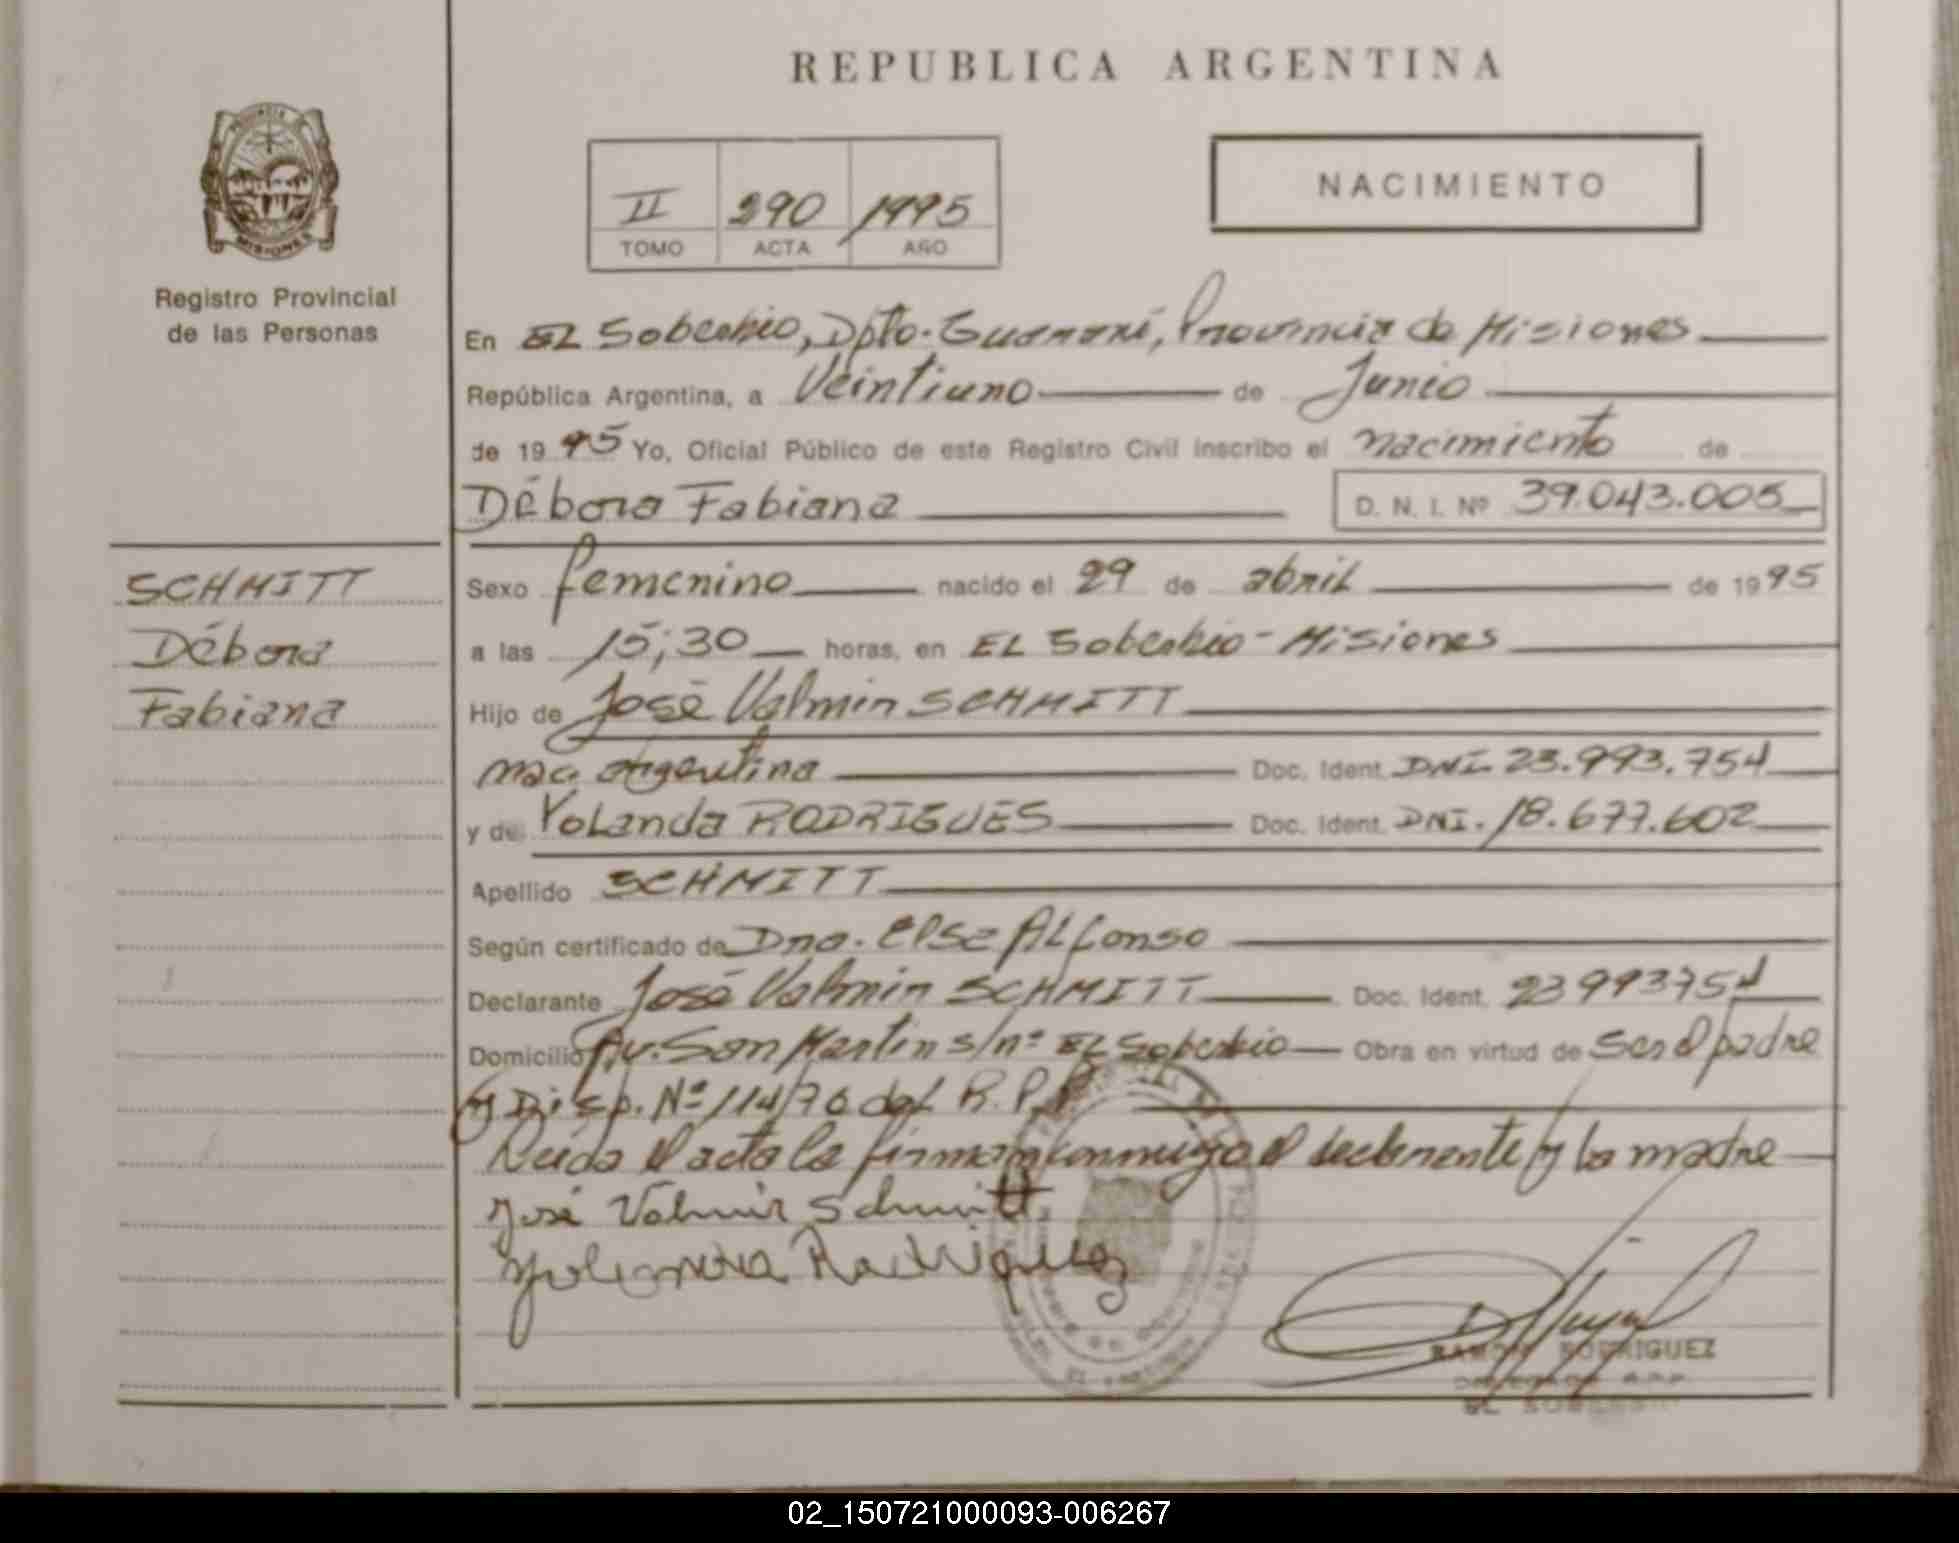 REPUBLICA ARGENTINA
PROVINCIA DE
MISIONES
Registro Provincial
de las Personas
II 290 1995
TOMO ACTA AÑO
NACIMIENTO
En EL Soberbio, Dpto. Guaraní, Provincia de Misiones
República Argentina, a Veintiuno de Junio
de 19 95 Yo, Oficial Público de este Registro Civil inscribo el nacimiento de
Débora Fabiana D. N. I. Nº 39.043.005
SCHMITT
Débora
Fabiana
Sexo femenino nacido el 29 de abril de 19 95
a las 15;30 horas, en EL Soberbio - Misiones
Hijo de José Valmir SCHMITT
nac. argentina Doc. Ident. DNI 23.993.754
y de Yolanda RODRIGUES Doc. Ident. DNI. 18.677.602
Apellido SCHMITT
Según certificado de Dra. Else ALfonso
Declarante José Valmir SCHMITT Doc. Ident. 23993754
Domicilio Av. San Martin s/nº EL Soberbio Obra en virtud de ser el padre
y Disp. Nº 114/70 del R.P.P
Leida el acta la firman conmigo el declarante y la madre
José Valmir Schmitt
Rodriguez
RAMON RODRIGUEZ
DELEGADO R.P.P.
EL SOBERBIO
02_150721000093-006267